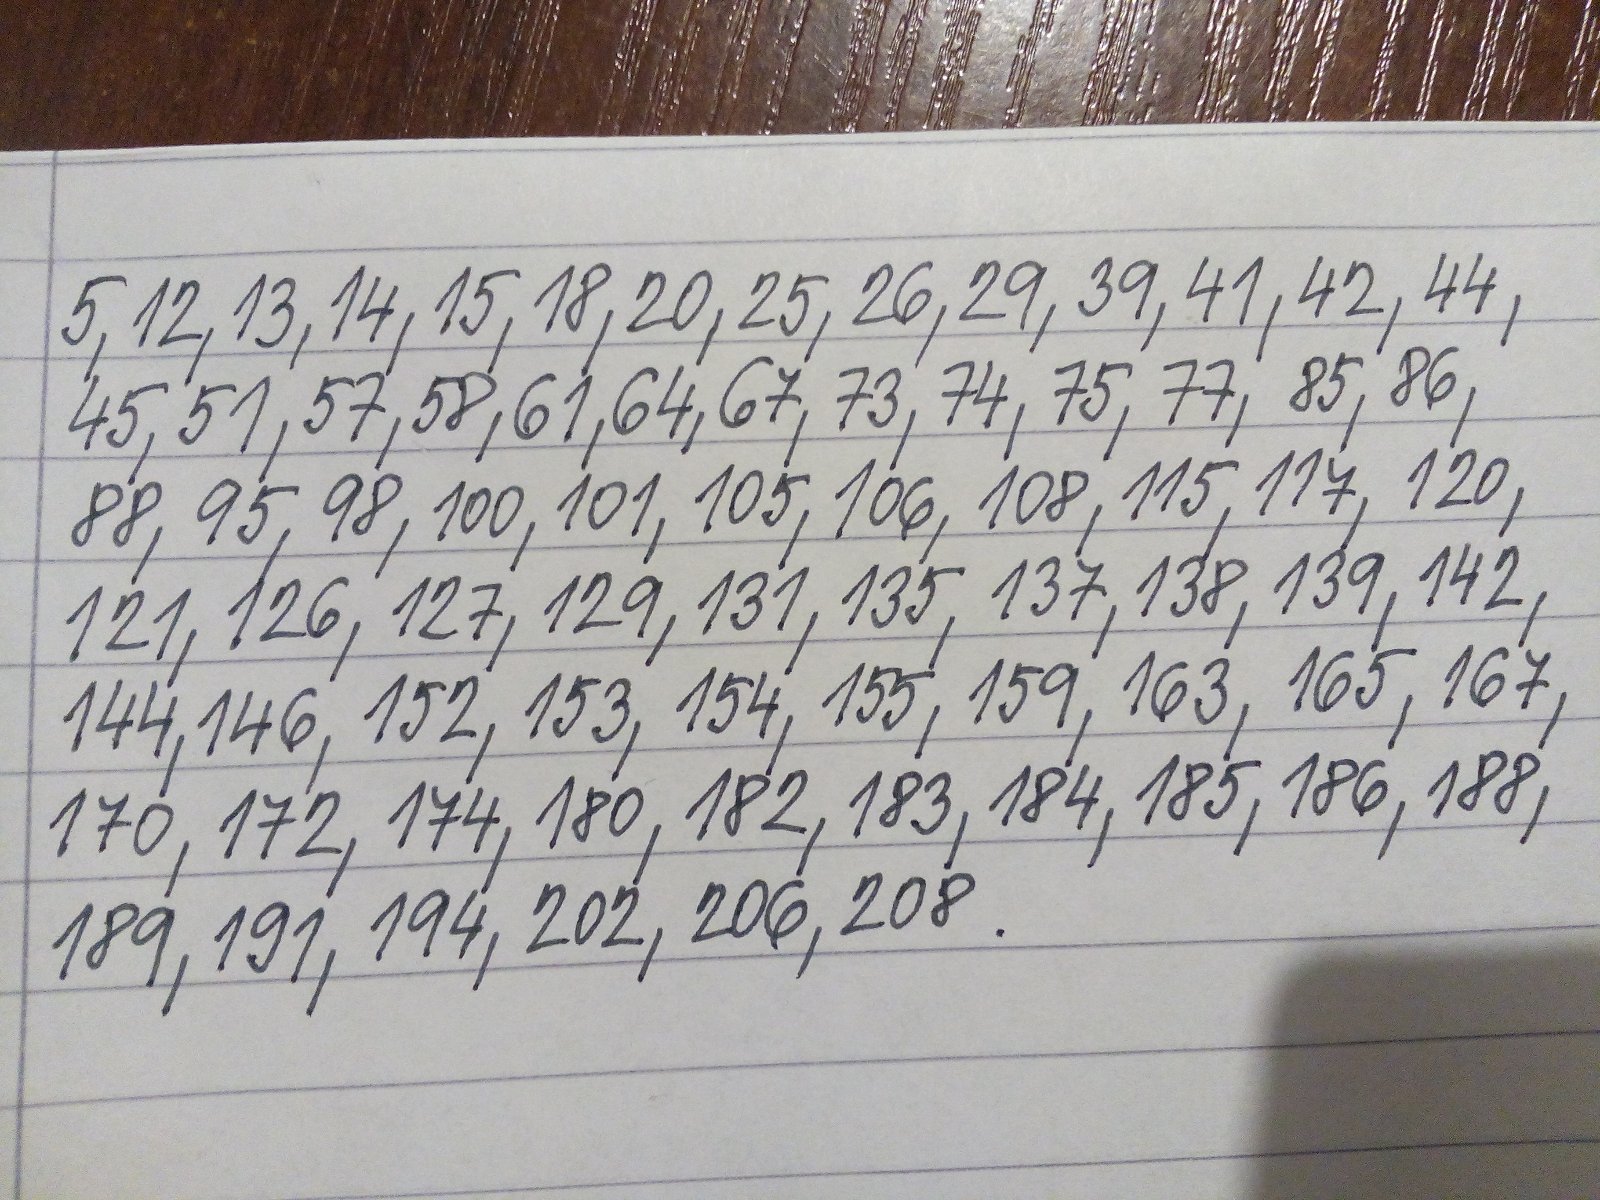 5, 12, 13, 14, 15, 18, 20, 25, 26, 29, 39, 41, 42, 44,
45, 51, 57, 58, 61, 64, 67, 73, 74, 75, 77, 85, 86,
88, 95, 98, 100, 101, 105, 106, 108, 115, 117, 120,
121, 126, 127, 129, 131, 135, 137, 138, 139, 142,
144, 146, 152, 153, 154, 155, 159, 163, 165, 167,
170, 172, 174, 180, 182, 183, 184, 185, 186, 188,
189, 191, 194, 202, 206, 208.